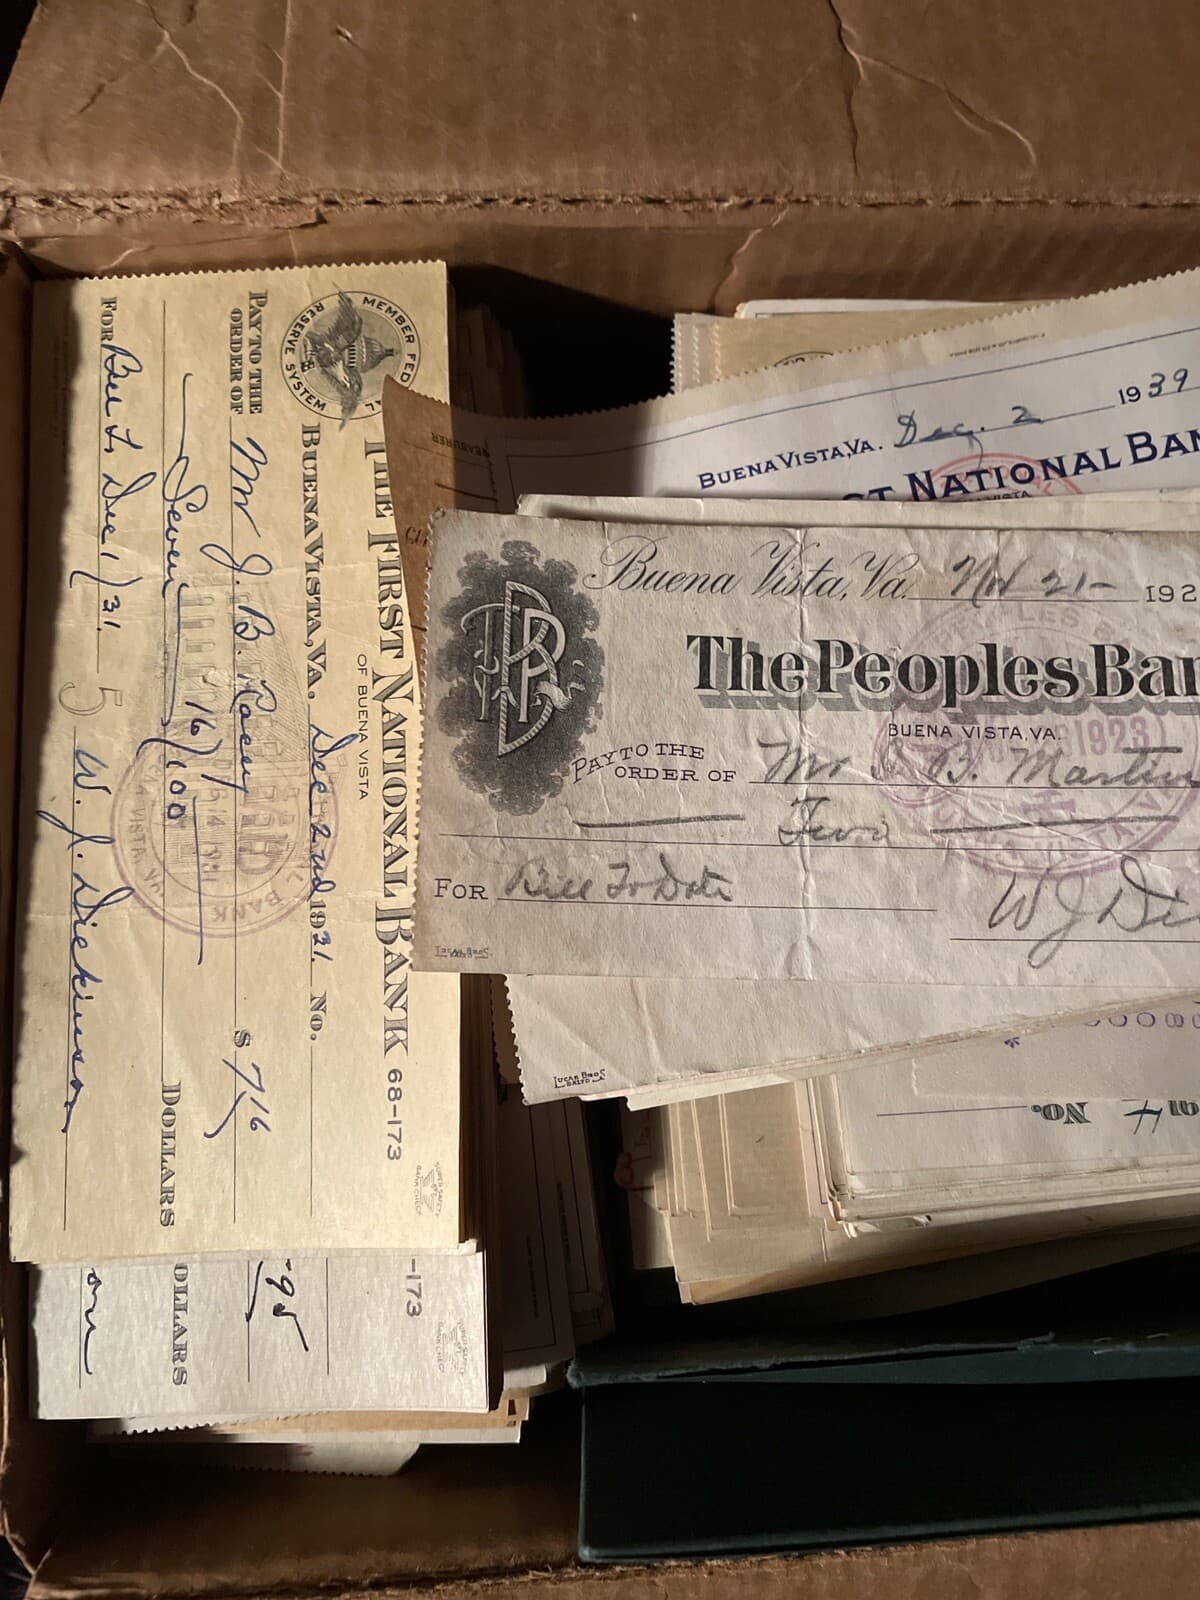 MEMBER FED
RESERVE SYSTEM
THE FIRST NATIONAL BANK 68-173
OF BUENA VISTA
BUENA VISTA, VA. Dec 2nd 1931. No.
PAY TO THE
ORDER OF Mr J. B. Racey $ 7 16
Seven 16/100 DOLLARS
FOR Bill To Dec 1/31. W. J. Dickinson
5
SUPER SAFETY
BANK CHECK
-173
95
OLLARS
on
SUPER SAFETY
BANK CHECK
BUENA VISTA, VA. Dec. 2 1939
ST NATIONAL BAN
VISTA
Buena Vista, Va. Nov 21- 192
The Peoples Ban
BUENA VISTA, VA.
1923
PAY TO THE
ORDER OF Mr B. Martin
Two
FOR Bill To Date
W J Di
LUCAS BROS.
LUCAS BROS
BALTO
191 4 No.